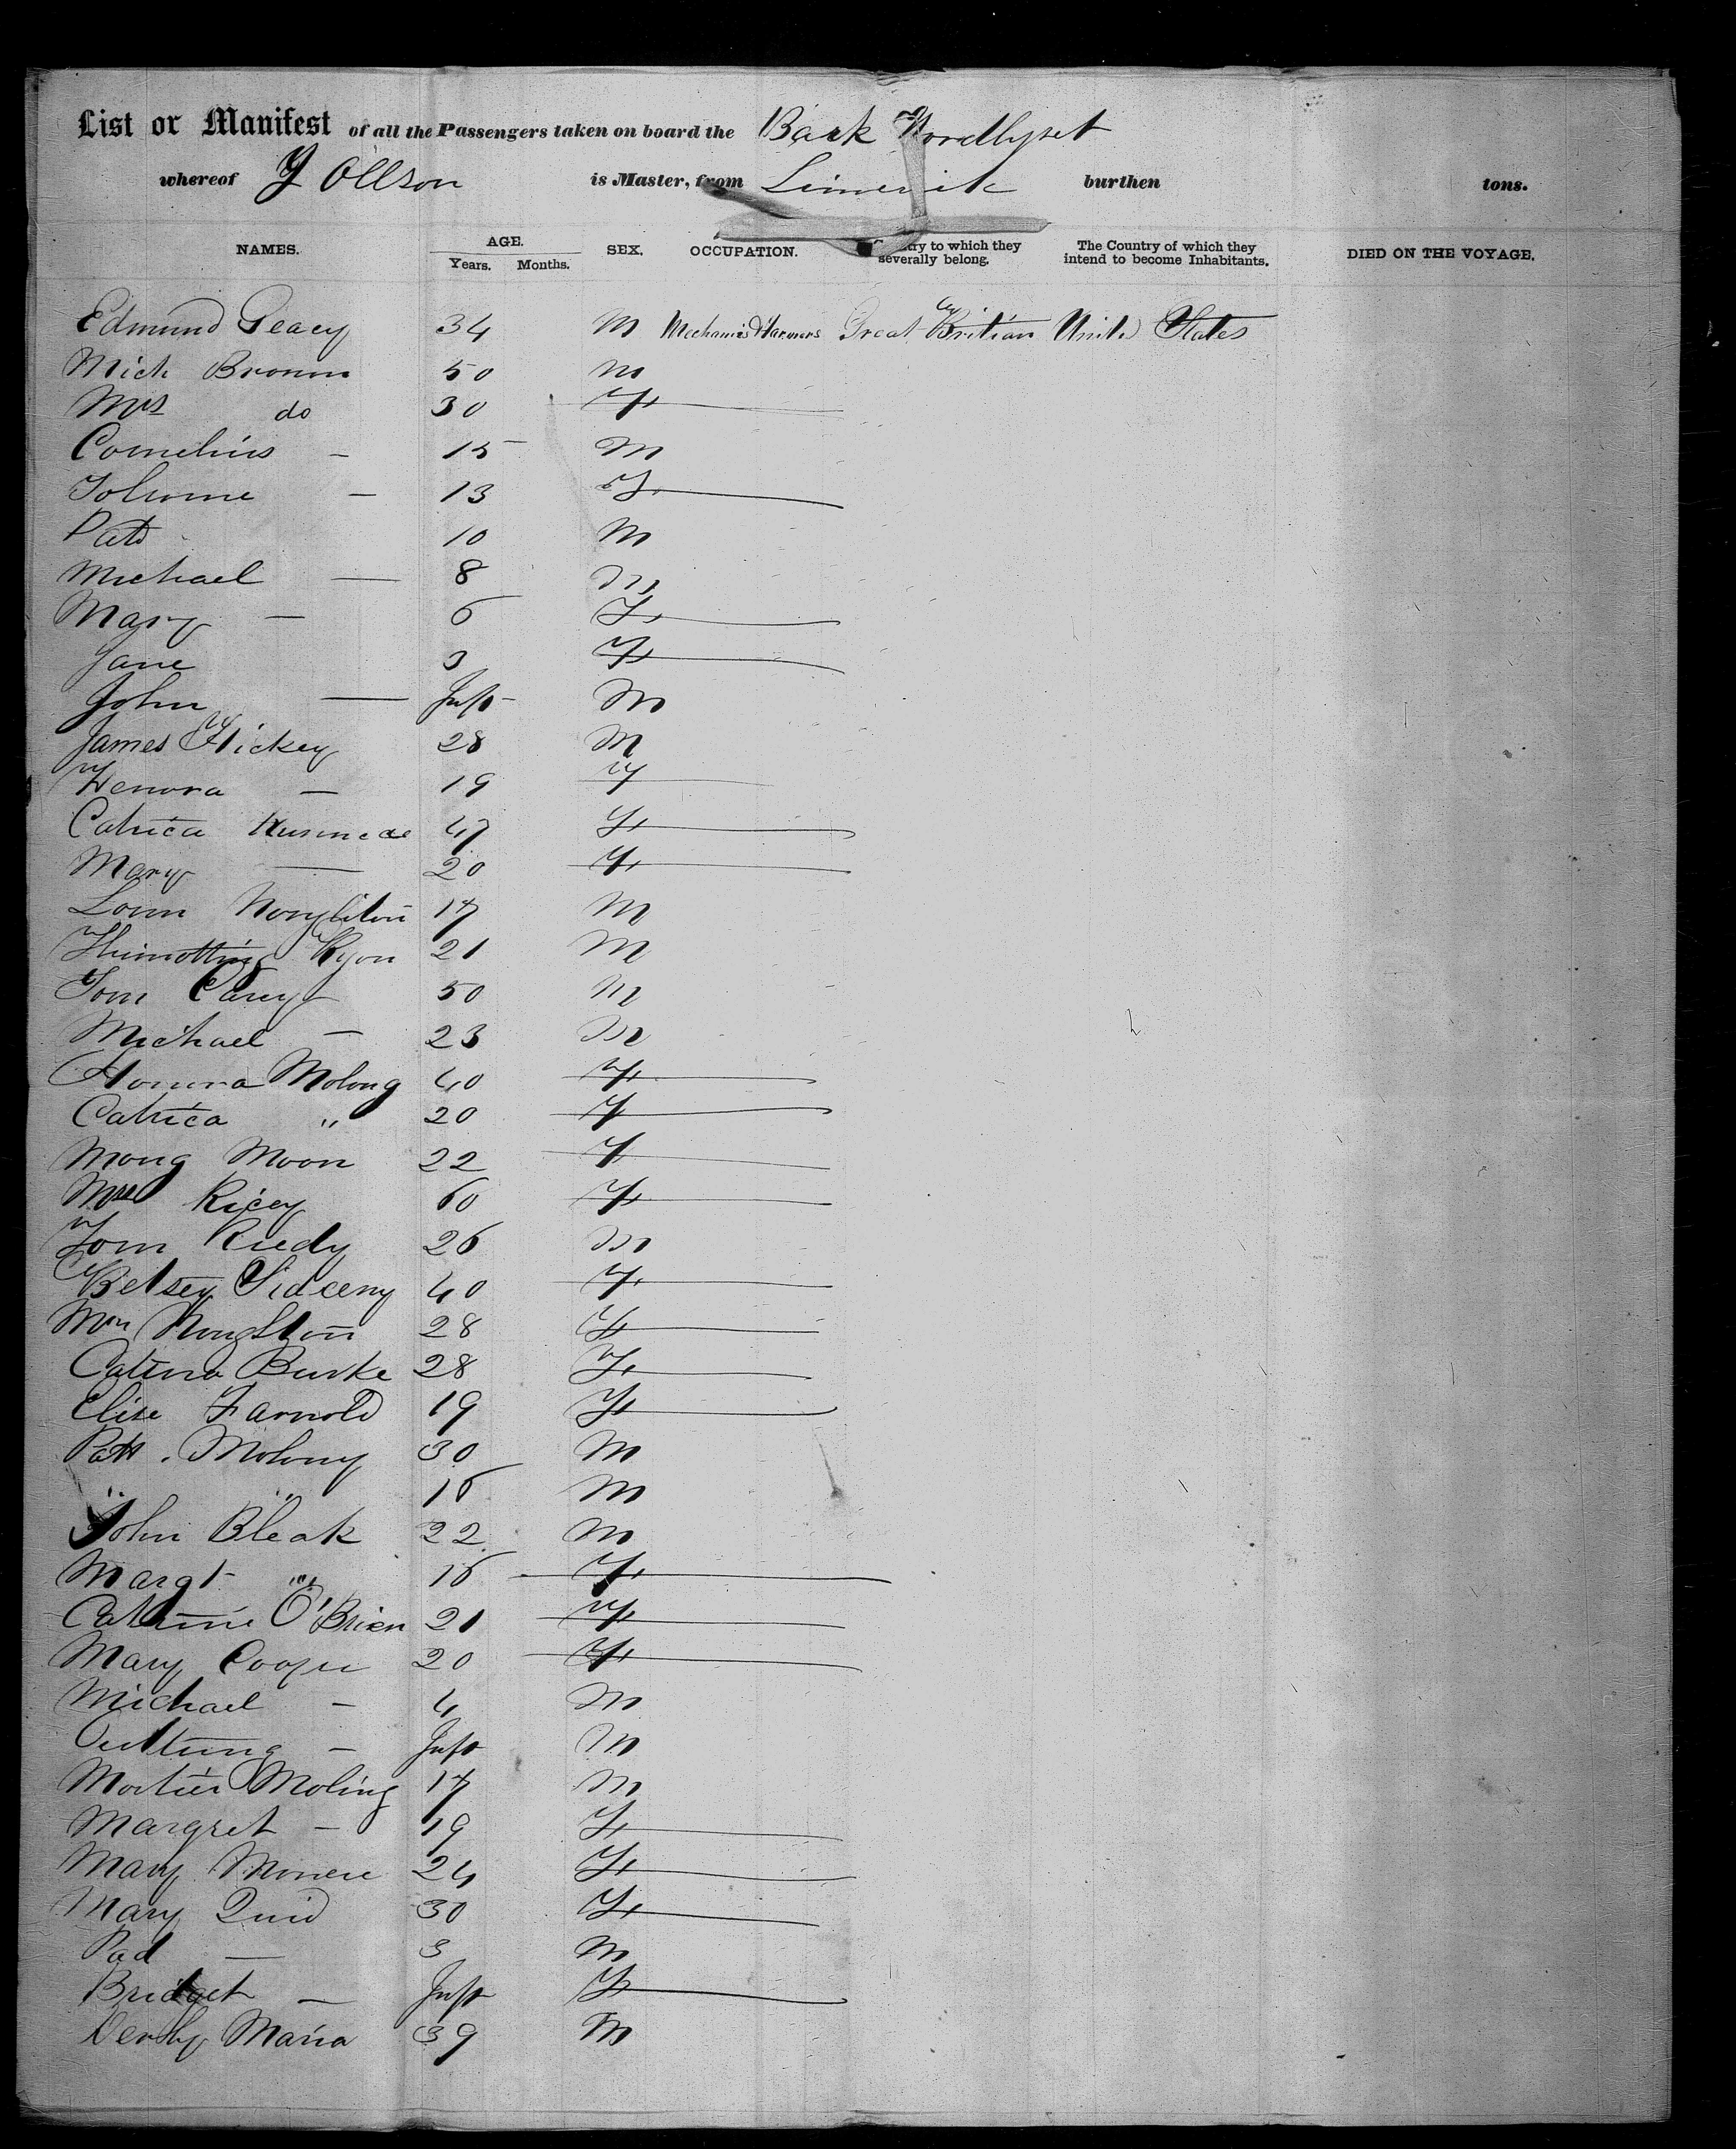 List or Manifest of all the Passengers taken on board the Bark Nordlyset
whereof J Ollson is Master, from Limerick burthen tons.
NAMES. AGE. Years. Months. SEX. OCCUPATION. to which they severally belong. The Country of which they intend to become Inhabitants. DIED ON THE VOYAGE.
Edmund Geacy 34 M Mechanics & Farmers Great Britian United States
Mich Bronn 50 M
Mrs do 30 F
Cornelius - 15 M
13 F
Patt 10 M
Michael - 8 M
Mary - 6 F
Jane 3 F
John - Inft M
James Hickey 28 M
Henora - 19 F
Catrica 47 F
Mary - 20 F
17 M
Thimothy Ryon 21 M
Tom Carey 50 M
Michael - 23 M
Honora Molony 40 F
Catrica " 20 F
Mong Moon 22 F
Mrs Ricey 60 F
Tom Riedy 26 M
Betsey 40 F
28 F
Catrina Burke 28 F
Elise Farnold 19 F
Patt. Molony 30 M
" " 16 M
John Bleak 22 M
Margt " 16 F
Cathrine O'Brien 21 F
Mary Cooper 20 F
Michael - 4 M
- Inft M
Moling 17 M
Margret - 19 F
Mary 24 F
Mary Quid 30 F
Pad - 3 M
Bridget - Inft F
Maria 39 M